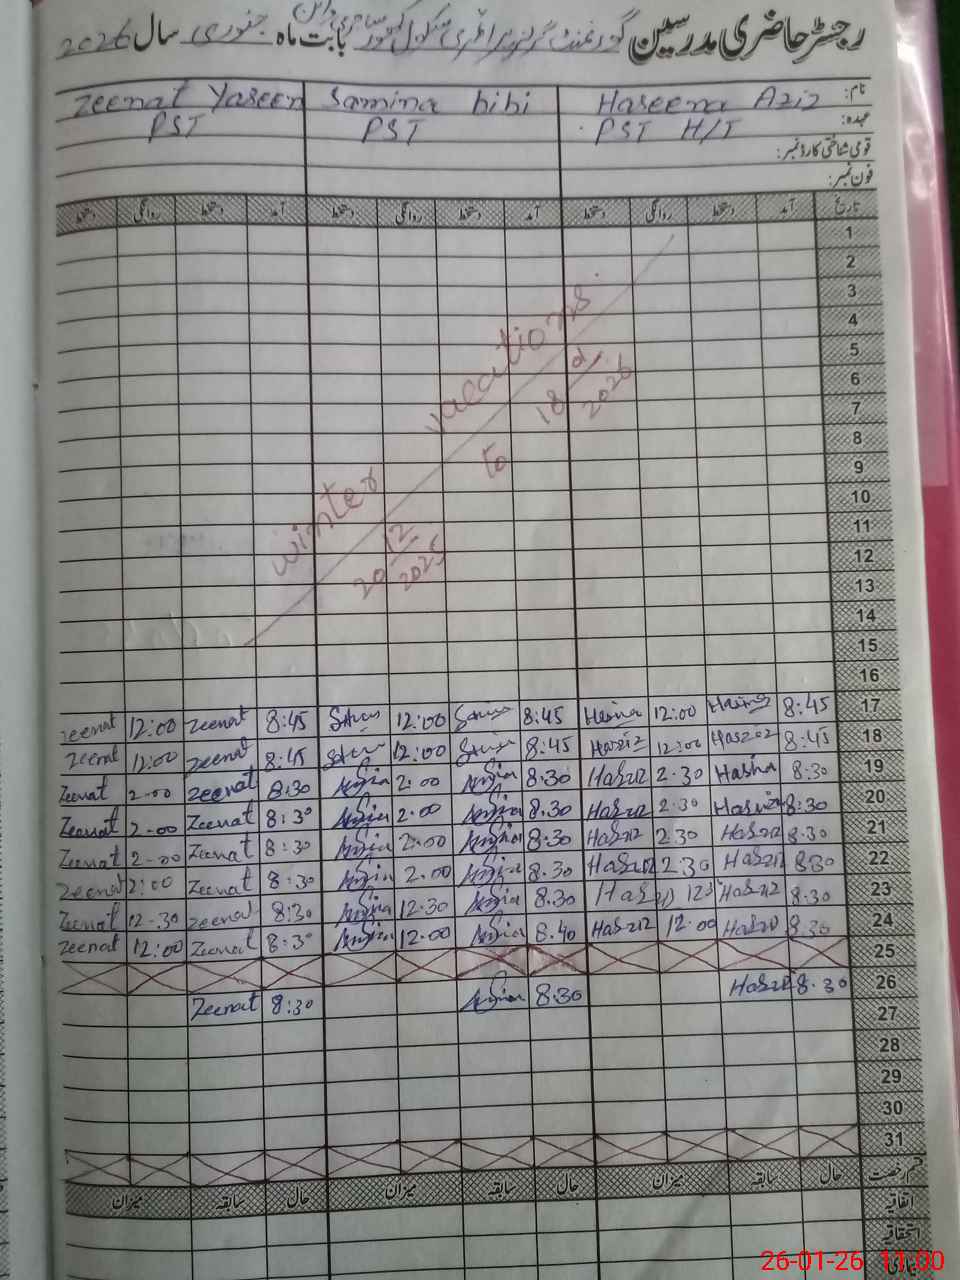 رجسٹر حاضری مدرسین گورنمنٹ گرلز پرائمری سکول بابت ماہ جنوری سال 2026
نام: Haseena Aziz Samina bibi Zeenat Yaseen
عہدہ: PST H/T PST PST
قومی شناختی کارڈ نمبر:
فون نمبر:
تاریخ آمد دستخط روانگی دستخط آمد دستخط روانگی دستخط آمد دستخط روانگی دستخط
1
2
3
4
5
6
7
8
9
10
11
12
13
14
15
16
winter vacations
20/12/2025 to 18/ /2026
17 8:45 12:00 8:45 12:00 8:45 zeenat 12:00 zeenat
18 8:45 12:00 8:45 12:00 8:45 zeenat 12:00 zeenat
19 8:30 2.30 8.30 2.00 8:30 zeenat 2.00 Zeenat
20 8:30 2.30 8.30 2.00 8:30 Zeenat 2.00 Zeenat
21 8:30 2.30 8.30 2.00 8:30 Zeenat 2.00 Zeenat
22 8:30 2.30 8.30 2.00 8:30 Zeenat 2:00 Zeenat
23 8.30 8.30 12.30 8:30 zeenat 12.30 Zeenat
24 8.30 12.00 8.40 12.00 8:30 Zeenat 12:00 Zeenat
25
26 8.30 8.30 8:30 Zeenat
27
28
29
30
31
قسم رخصت حال سابقہ میزان حال سابقہ میزان حال سابقہ میزان
اتفاقیہ
استحقاقیہ
26-01-26 11:00